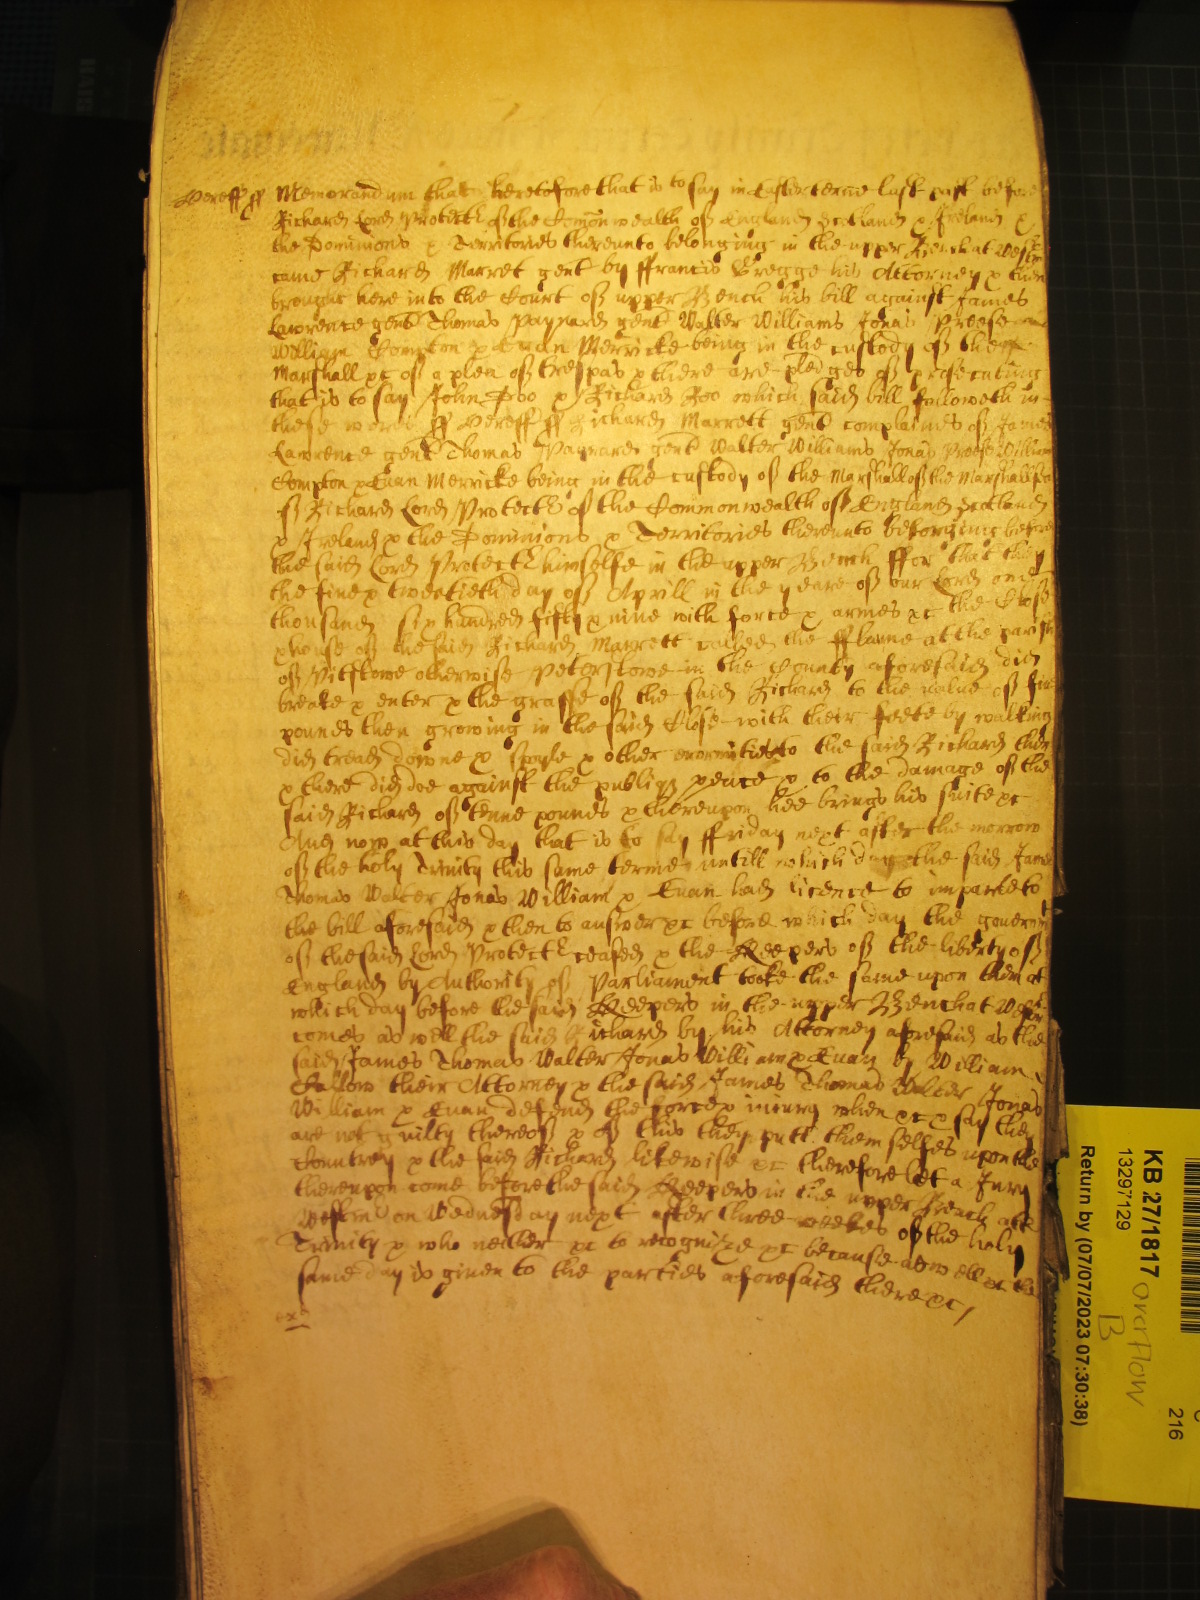 Hereff ss Memorandum that heretofore that is to say in Easter terme last past before
Richard Lord Protectr of the Comonwealth of England Scotland & Ireland &
the Dominions & Territories thereunto belonging in the upper Bench at Westm
came Richard Marret gent by ffrancis Gregge his Attorney & then
brought here into the Court of upper Bench his bill against James
Lawrence gent Thomas Paynard gent Walter Williams Jonas Preese
William Compton & Euan Merricke being in the custody of the
Marshall &c of a plea of trespas & there are pledges of prosecuting
that is to say John Doo & Richard Roo which said bill followeth in
these words ss Hereff ss Richard Marrett gent complaines of James
Lawrence gent Thomas Paynard gent Walter Williams Jonas Preese William
Compton & Euan Merricke being in the custody of the Marshall of the Marshallsea
of Richard Lord Protectr of the Commonwealth of England Scotland
& Ireland & the Dominions & Territories thereunto belonging before
the said Lord Protectr himselfe in the upper Bench ffor that they
the fiue & twentieth day of Aprill in the yeare of our Lord one
thousand six hundred fifty & nine with force & armes &c the Close
& house of the said Richard Marrett called the fflaune at the parish
of Pitstowe otherwise Peterstowe in the County aforesaid did
breake & enter & the grasse of the said Richard to the value of fiue
pounds then growing in the said Close with their feete by walking
did tread downe & spoyle & other enormities to the said Richard then
& there did doe against the publiq peace & to the damage of the
said Richard of tenne pounds & thereupon hee brings his suite &c
And now at this day that is to say ffriday next after the morrow
of the holy Trinity this same terme untill which day the said James
Thomas Walter Jonas William & Euan had licence to imparle to
the bill aforesaid & then to answer &c before which day the gouernmt
of the said Lord Protectr ceased & the Keepers of the liberty of
England by Authority of Parliament tooke the same upon them at
which day before the said Keepers in the upper Bench at Westm
comes as well the said Richard by his Attorney aforesaid as the
said James Thomas Walter Jonas William & Euan by William
Hallow their Attorney & the said James Thomas Walter Jonas
William & Euan defend the force & iniury when &c & say they
are not guilty thereof & of this they putt themselfes upon the
Countrey & the said Richard likewise &c therefore let a Jury
thereupon come before the said Keepers in the upper Bench att
Westm on Wednesday next after three weekes of the holy
Trinity & who neither &c to recognize &c because aswell &c the
same day is giuen to the parties aforesaid there &c /
KB 27/1817 overflow B
13297129
Return by (07/07/2023 07:30:38)
216